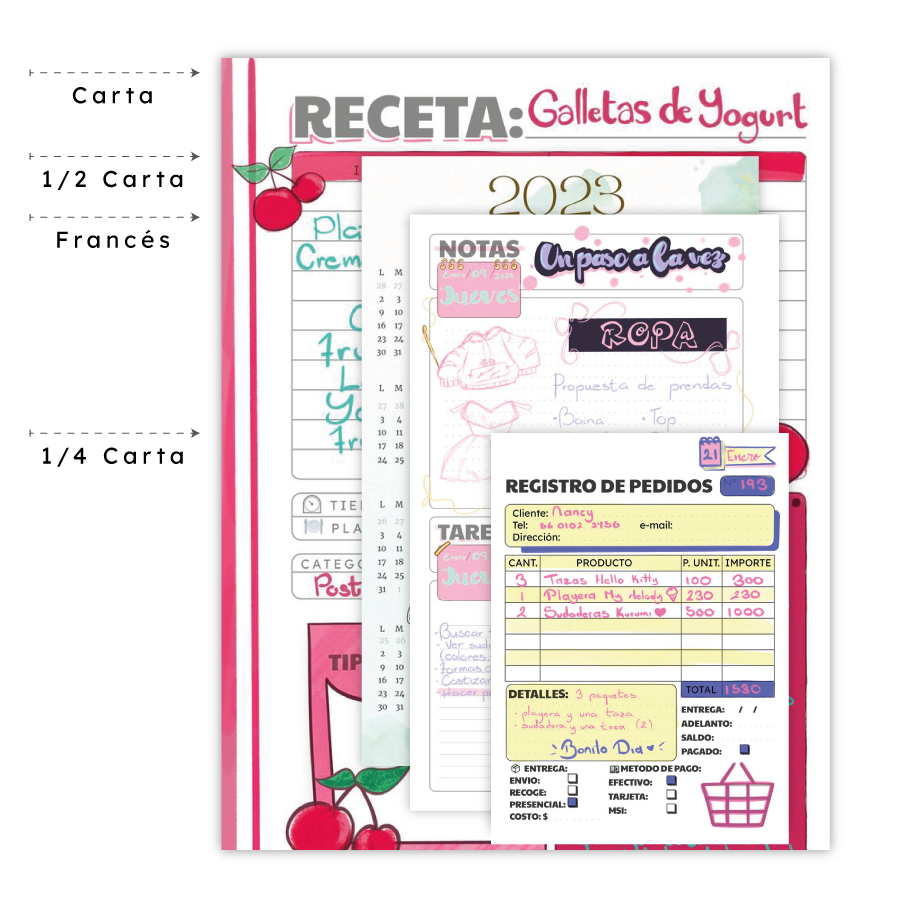 Carta
1/2 Carta
Francés
1/4 Carta
RECETA: Galletas de Yogurt
2023
L M
28 27
2 3
9 10
16 17
23 24
30 31
L M
27 28
3 4
10 11
17 18
24 25
L M
26 27
3 4
10 11
17 18
24 25
31 1
L M
25 26
2 3
9 10
16 17
23 24
30 31
NOTAS
Enero/09/2024
Jueves
Un paso a la vez
ROPA
Propuesta de prendas
·Boina ·Top
TARE
Enero/09
·Buscar
·Ver sud
(colores,
·Formas
·Cotizar
·Hacer p
21 Enero
REGISTRO DE PEDIDOS Nº 193
Cliente: Nancy
Tel: 56 0102 3456 e-mail:
Dirección:
CANT. PRODUCTO P. UNIT. IMPORTE
3 Tazas Hello Kitty 100 300
1 Playera My Melody 230 230
2 Sudaderas Kuromi 500 1000
TOTAL 1530
DETALLES: 3 paquetes
- playera y una taza
- sudadera y una taza (2)
Bonito Dia
ENTREGA: / /
ADELANTO:
SALDO:
PAGADO:
ENTREGA:
ENVIO:
RECOGE:
PRESENCIAL:
COSTO: $
METODO DE PAGO:
EFECTIVO:
TARJETA:
MSI:
Crem
TIE
PLA
CATEGO
Post
TIP